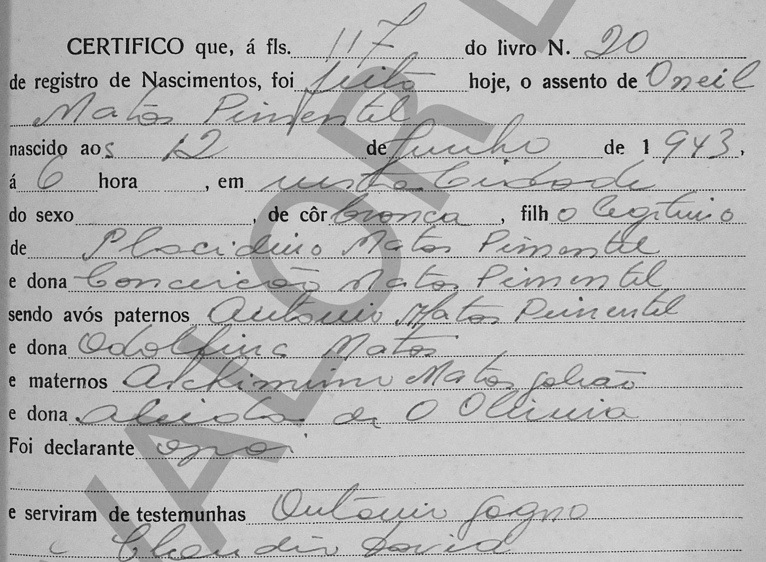 CERTIFICO que, á fls. 117 do livro N. 20
de registro de Nascimentos, foi feito hoje, o assento de Oneil
Matos Pimentel
nascido aos 12 de Junho de 1943,
á 6 hora, em nesta Cidade
do sexo, de côr branca, filho legitimo
de Placidino Matos Pimentel
e dona Conceição Matos Pimentel
sendo avós paternos Antonio Matos Pimentel
e dona Odolfina Matos
e maternos Archimimo Matos Galvão
e dona Alcida de O Oliveira
Foi declarante o pai
e serviram de testemunhas Antonio
e Claudio David
VALOR